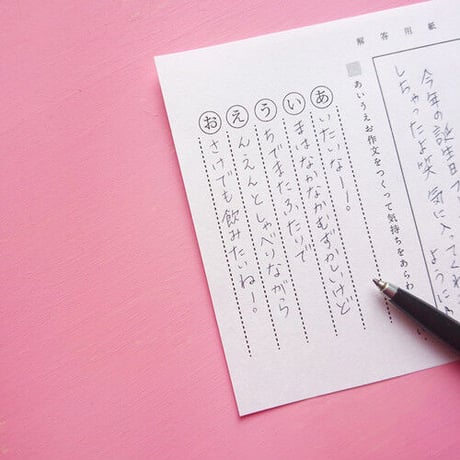 解答用紙
今年の誕生日
しちゃったよ笑 気に入
あいうえお作文をつくって気持ちをあらわ
あいたいなーー。
いまはなかなかむずかしいけど
うちでまたふたりで
えんえんとしゃべりながら
おさけでも飲みたいねー。